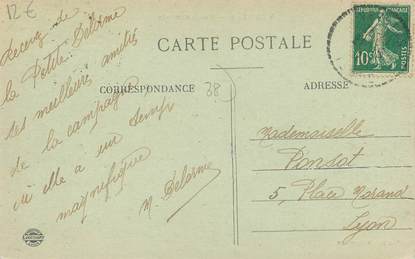 12 €
CARTE POSTALE
RÉPUBLIQUE FRANÇAISE
10c
POSTES
CORRESPONDANCE
38
ADRESSE
Recevez de
la Petite Delorme
ses meilleurs amitiés
de la campagne
où elle a un temps
magnifique
M. Delorme
Mademoiselle
Ponsot
5, Place Morand
Lyon